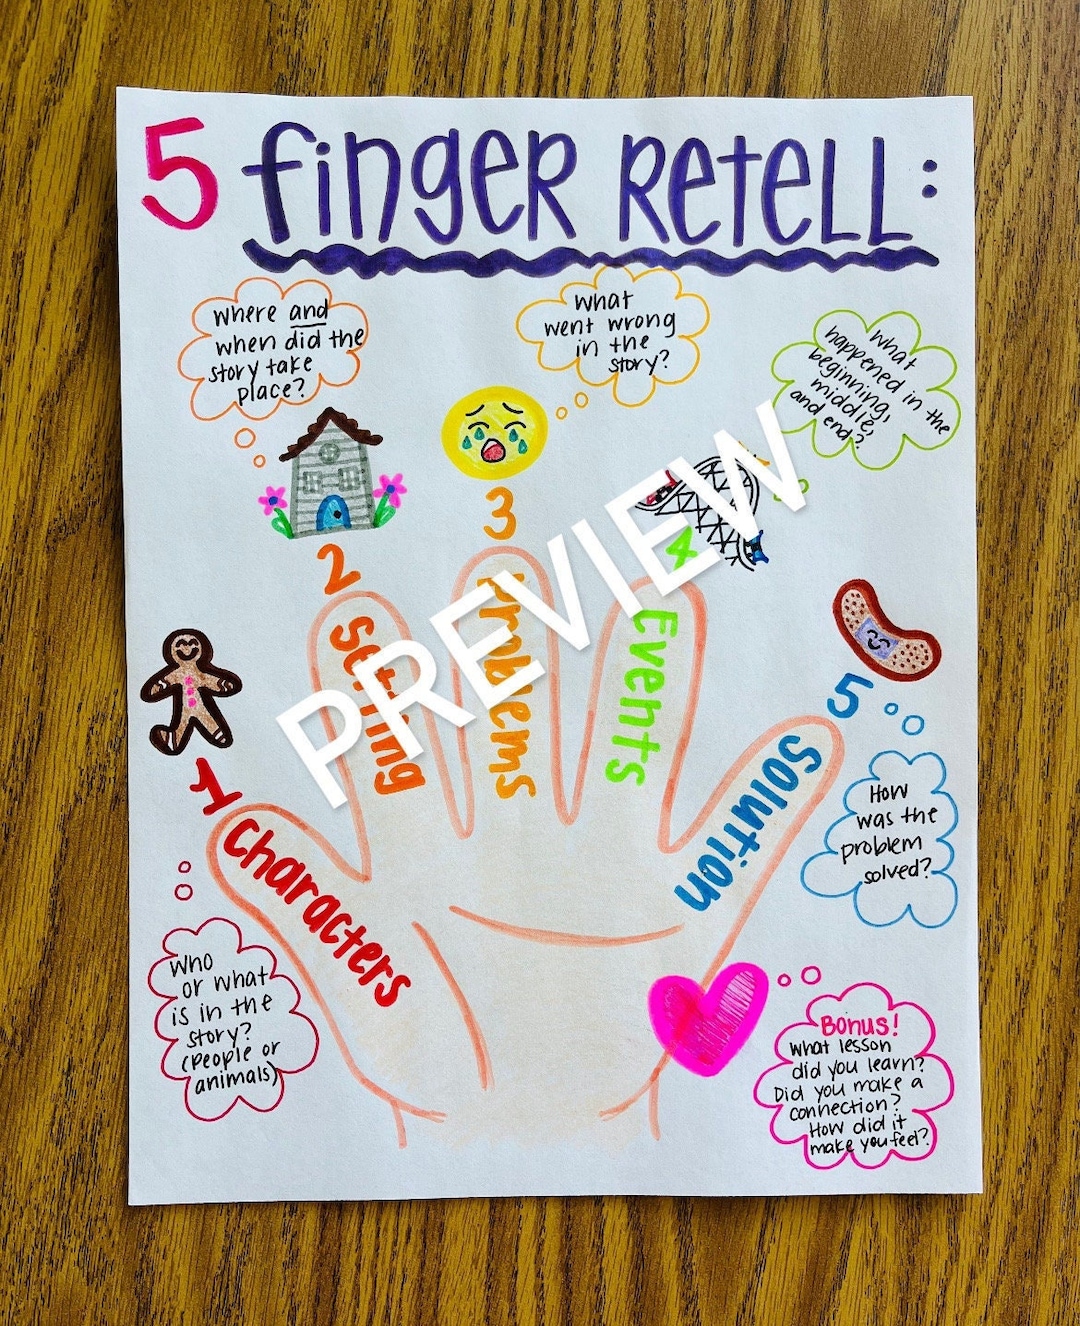 5 finger Retell:
where and
when did the
story take
place?
What
went wrong
in the
story?
What
happened in the
beginning,
middle,
and end?
3
4
2
5
1
Setting
Problems
Events
Solution
Characters
PREVIEW
How
was the
problem
solved?
Who
or what
is in the
story?
(people or
animals)
Bonus!
What lesson
did you learn?
Did you make a
connection?
How did it
make you feel?